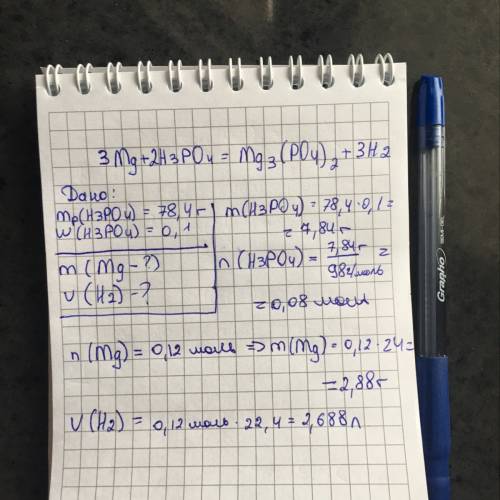 3Mg+2H3PO4 = Mg3(PO4)2+3H2
Дано:
mр(H3PO4) = 78,4г
w(H3PO4) = 0,1
m(Mg-?)
V(H2)-?
m(H3PO4) = 78,4·0,1=
= 7,84г
n(H3PO4) = 7,84г / 98г/моль =
=0,08моль
n(Mg) = 0,12моль => m(Mg) = 0,12·24=
=2,88г
V(H2) = 0,12моль·22,4=2,688л
Grapho